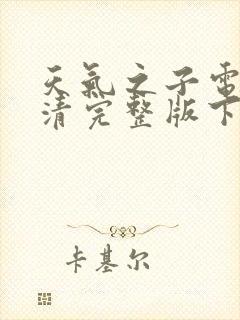 天氣之子電
清完整版下
卡基尔